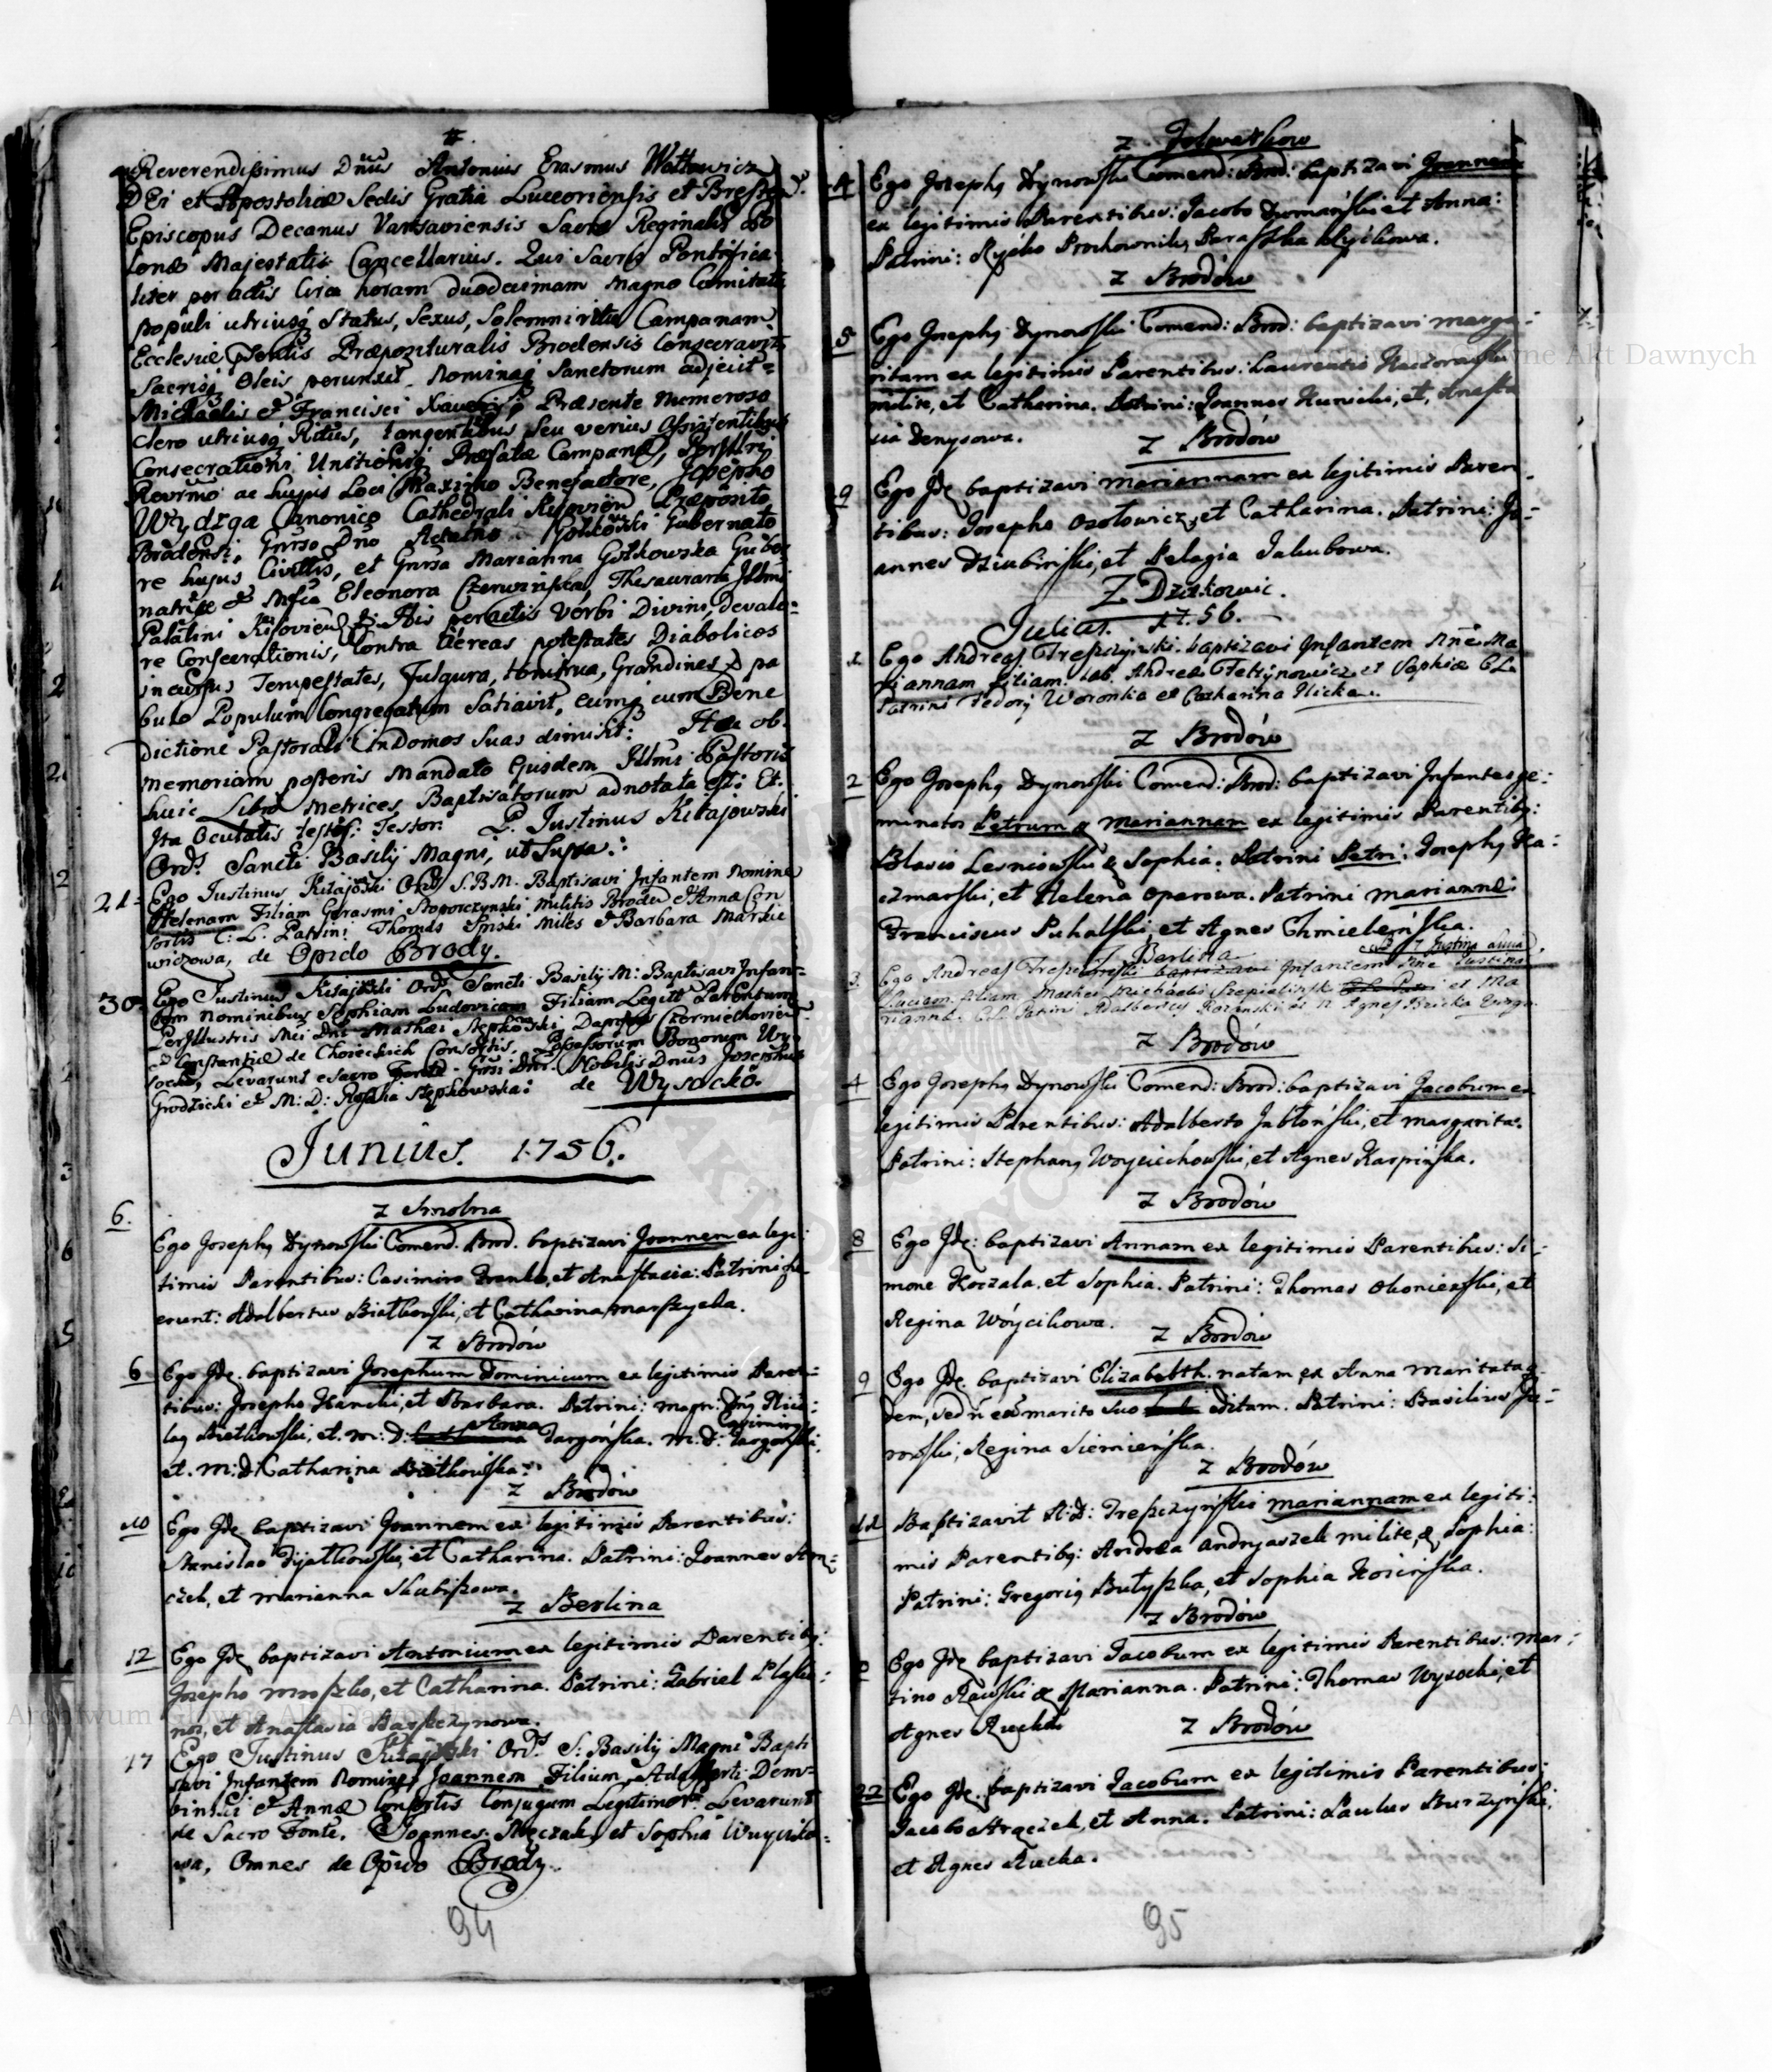 #
Reverendissimus Dnus Antonius Erasmus Wołłowicz
DEi et Apostolicæ Sedis Gratia Luceoriensis et Bresten:
Episcopus Decanus Varsaviensis Sacræ Reginalis Po
lonæ Majestatis Cancellarius. Qui Sacris Pontifica
liter peractis Circa horam duodecimam Magno Comitatu
populi utriusq Status, Sexus, Solemni ritu Campanam
Ecclesiæ Præpozituralis Brodensis Consecravit
Sacrisq Oleis perunxit. Nominaq Sanctorum adjecit
Michaelis et Francisci Xaverij, Præsente Numeroso
Clero utriusq Ritus, tangentibus seu verius Assistentibus
Consecrationi Unctioniq Præfatæ Campanæ, Perillri
Revrmo ac hujus Loci Maximo Benefactore, Josepho
Wydzga Canonico Cathedrali Kijovien Præposito
Brodensi, Gnrso Dno Gołkowski Gubernato
re hujus Civittis, et Gnrsa Marianna Gołkowska Guber
natrice & Mfca Eleonora Czerwinska, Thesauraria Illmi
Palatini Kijovien His peractis Verbi Divini, de valo
re Consecrationis, Contra aereas potestates Diabolicos
incursus Tempestates, Fulgura, tonitrua, Grandines & pa
bulo Populum Congregatum Satiavit, eumq cum Bene
dictione Pastorali in Domos Suas dimisit: Hæc ob.
memoriam posteris Mandato Ejusdem Illmi Pastoris
huic Libro Metrices Baptisatorum adnotata est: Et
Ita Oculatis Testis: Testor. P. Justinus Kiłajowski
Ords Sancti Basilij Magni, ut Supra:
21. Ego Justinus Kiłajoski Ords S.B.M. Baptisavi Infantem Nomine
Helenam Filiam Gerasmi Stoporczynski Militis Brodu & Annæ Con
sortis C: L. Patrini Thomas Spiski Miles & Barbara Markie
wiczowa, de Opido Brody.
30. Ego Justinus Kiłajoski Ords Sancti Basilij M: Baptisavi Infan
tem nominibus Sophiam Ludovicam Filiam Legitt Parentum
Perillustris Mci Dni Mathæi Stepkowski Czerniechovien
& Constantiæ de Choreckich Consortis, Possessorum Bonorum Wy
socko, Levarunt e Sacro Fonte Nobilis Dnus Josephus
Grodzicki & M: D: Rosalia Stepkowska: de Wysocko.
Junius. 1756.
z Smolna
6. Ego Josephq Dynowski Comend. Brod. baptizavi Joannem ex legi
timis Parentibus: Casimiro Franko, et Anastasia: Patrini fu
erunt: Adalbertus Białkowski, et Catharina Marszycka.
z Brodów
6 Ego Jde. baptizavi Josephum Dominicum ex legitimis Paren
tibus: Josepho Hancki, et Barbara. Patrini: magn: Dnq
Bietkowski, et. m: D: Anna Targońska. M: D: Casimirq Targoński,
et. m: d: Catharina Bietkowska.
z Brodów
10 Ego Jde baptizavi Joannem ex legitimis Parentibus:
Stanislao Dijatkowski, et Catharina. Patrini: Joannes
czek, et marianna Skubiszowa.
z Berlina
12 Ego Jde baptizavi Antonium ex legitimis Parentibq:
Josepho mroszko, et Catharina. Patrini: Gabriel
et Anastasia Barszczynowa.
17 Ego Justinus Kiłajoski Ords S: Basilij Magni Bapti
savi Infantem Nomine Joannem Filium Adalberti Dem
binski & Annæ Consortis Conjugum Legitimor. Levarunt
de Sacro Fonte. Joannes et Sophia Wuyciko
wa, Omnes de Opido Brody.
94
z Folwarkow
4 Ego Josephq Dynowski Comend: Brod: baptizavi Joannem
ex legitimis Parentibus: Jacobo Domański et Anna:
Patrini: Ryćko Prochownik, Paraszka Ryćkowa.
z Brodów
5 Ego Josephq Dynowski Comend: Brod: baptizavi marga
ritam ex legitimis Parentibus: Laurentio
milite, et Catharina. Patrini: Joannes Kunicki, et, Anasta
sia Denysowa.
z Brodów
9 Ego Jde baptizavi mariannam ex legitimis Paren
tibus: Josepho Ozołowicz, et Catharina. Patrini: Jo
annes Dziubiński, et Pelagia Jakubowa.
Z Dzitkowic.
Julius. 1756.
1. Ego Andreas Trepczynski baptizavi Infantem Nne Ma
riannam filiam: Lab. Andreæ Fetzynowicz et Sophiæ CL
Patrini Fedory Woronka et Catharina Ilicka.
z Brodów
2 Ego Josephq Dynowski Comend: Brod: baptizavi Infantes ge
minatos Petrum & Mariannam ex legitimis Parentibq:
Blasio Lesniowski & Sophia: Patrini Petri: Josephq Ka
czmarski, et Helena Oparowa. Patrini mariannæ
Franciscus Puhalski, et Agnes Chmieleńska.
z Berlina
3. Ego Andreas Infantem Nne Justina
filiam et Ma
riannæ. CL Patrini Adalbertq et Agnes
z Brodów
4 Ego Josephq Dynowski Comend: Brod: baptizavi Jacobum ex
legitimis Parentibus: Adalberto Jabłoński, et margarita.
Patrini: Stephanq Woyciechowski, et Agnes Karpińska.
z Brodów
8 Ego Jde: baptizavi Annam ex legitimis Parentibus: Si
mone Koczala. et Sophia. Patrini: Thomas Okonieński, et
Regina Wóycikowa.
z Brodów
9 Ego Jde baptizavi Elizabetth. natam ex Anna maritata
dem, sed n marito suo editam. Patrini: Basilius Ja
rowski, Regina Siemieńska.
z Brodów
11 Baptizavit A: D: Trepczyński mariannam ex legiti
mis Parentibq: Andrea Andryaszek milite, & Sophia:
Patrini: Gregoriq Butyszka, et Sophia Kosińska.
z Brodów
Ego Jde baptizavi Jacobum ex legitimis Parentibus: Mar
tino Rawski & Marianna. Patrini: Thomas Wysocki, et
Agnes Rucka
z Brodów
22 Ego Jde. baptizavi Jacobum ex legitimis Parentibus:
Jacobo et Anna. Patrini: Paulus Burzyński,
et Agnes Rucka.
95
Archiwum Główne Akt Dawnych